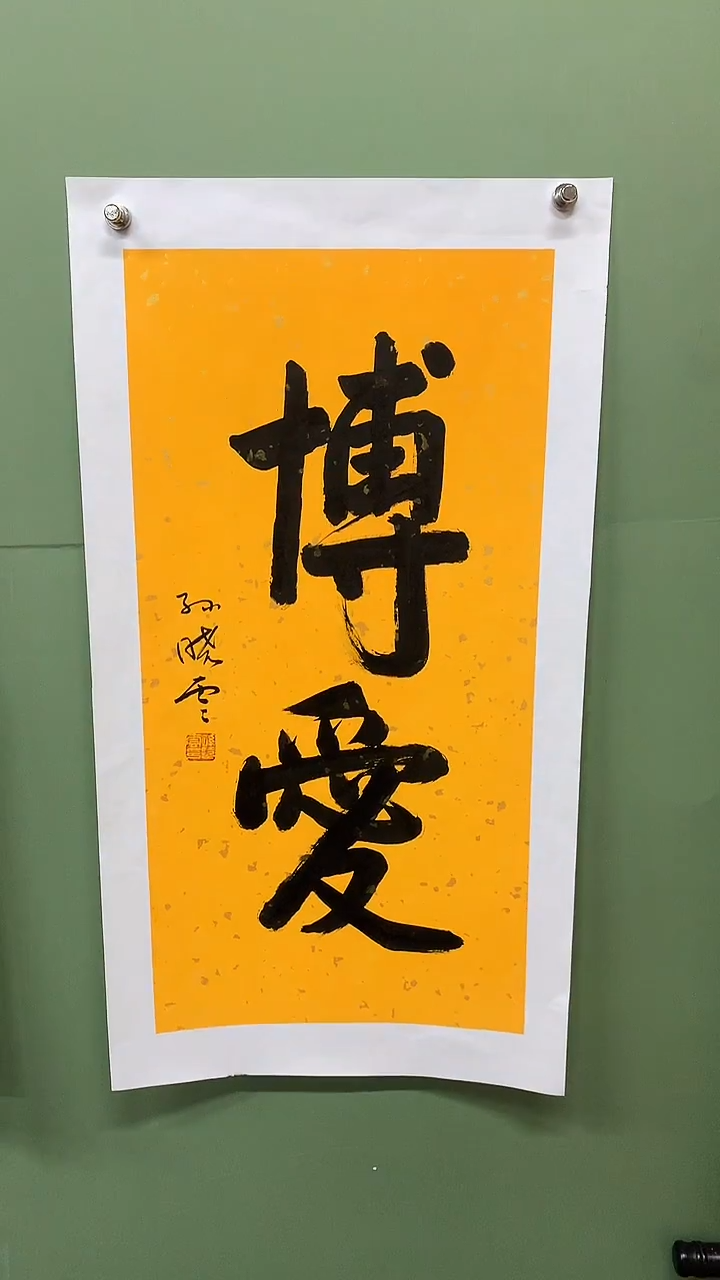 博愛
孙晓云